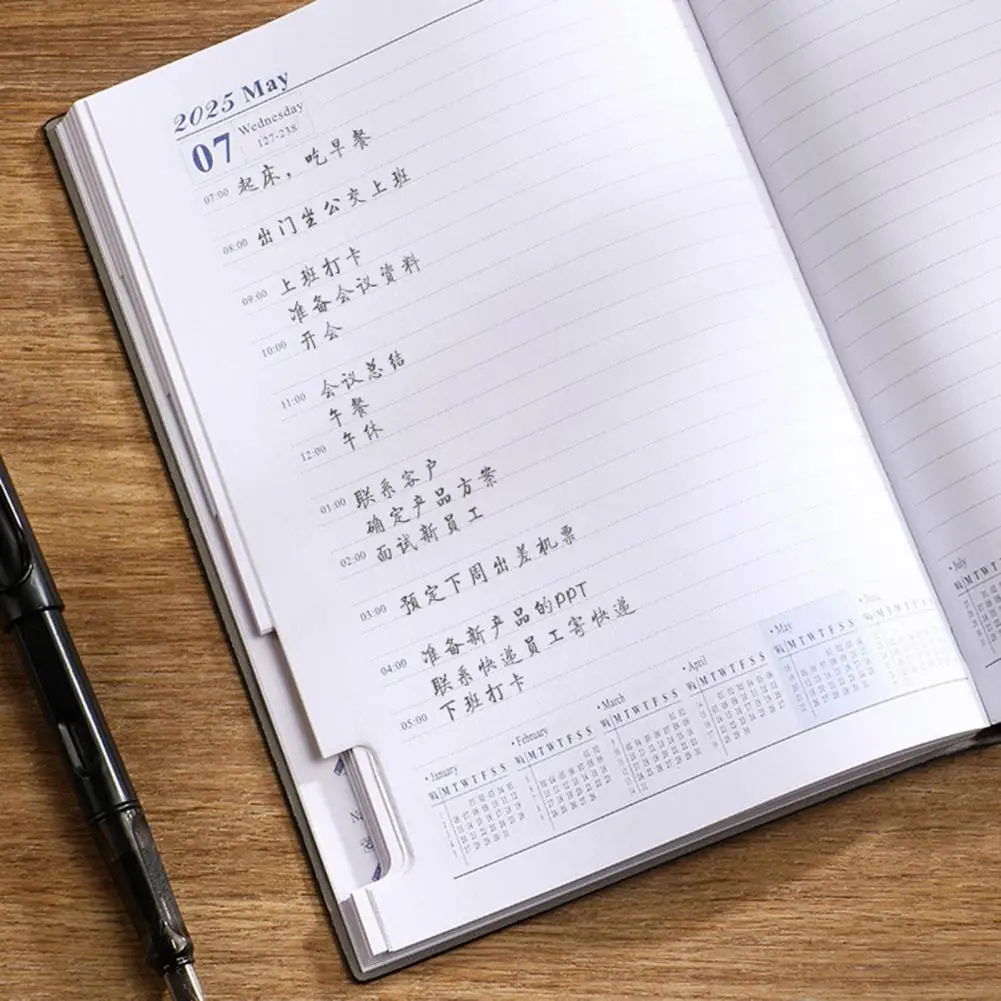 2025 May
07 Wednesday
127-238
07:00 起床，吃早餐
08:00 出门坐公交上班
09:00 上班打卡
准备会议资料
10:00 开会
11:00 会议总结
午餐
12:00 午休
01:00 联系客户
确定产品方案
02:00 面试新员工
03:00 预定下周出差机票
04:00 准备新产品的PPT
联系快递员工寄快递
05:00 下班打卡
• January
Wk M T W T F S S
• February
Wk M T W T F S S
• March
Wk M T W T F S S
• April
Wk M T W T F S S
• May
Wk M T W T F S S
• July
Wk M T W T F S S